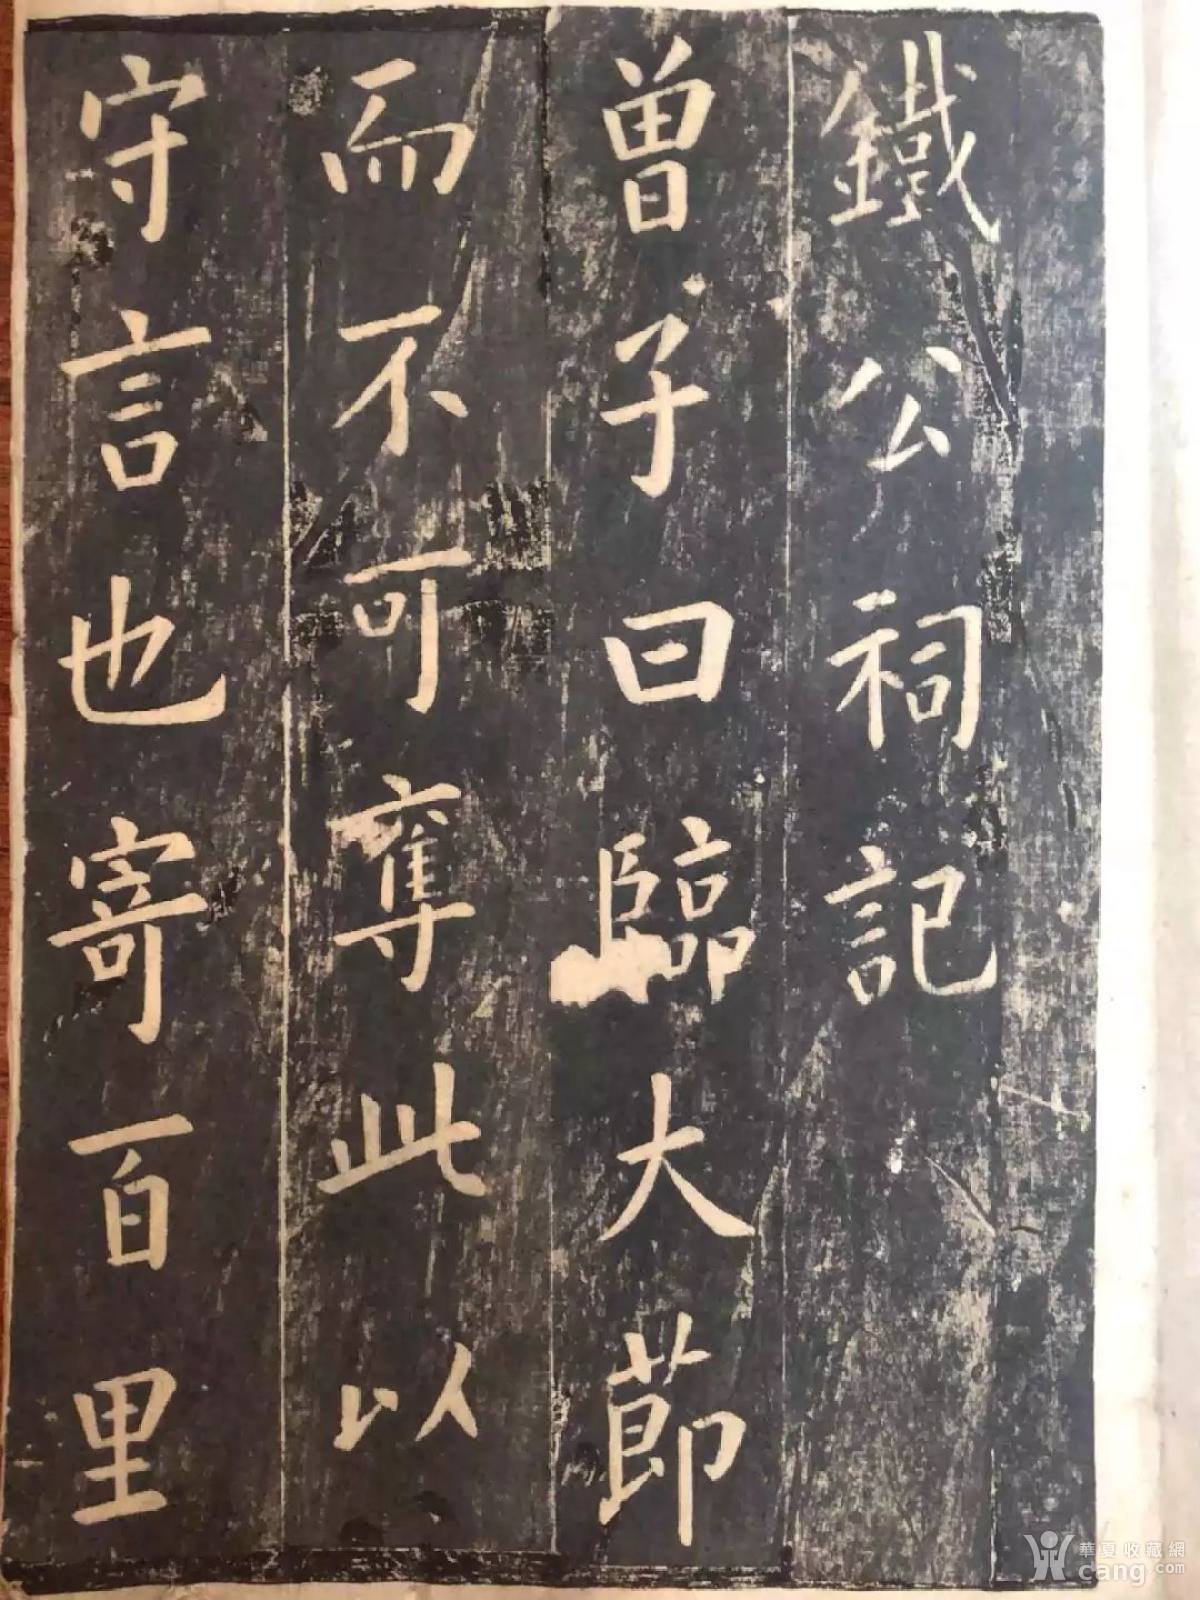 鐵公祠記
曾子曰臨大莭
而不可奪此以
守言也寄百里
華夏收藏網
cang.com